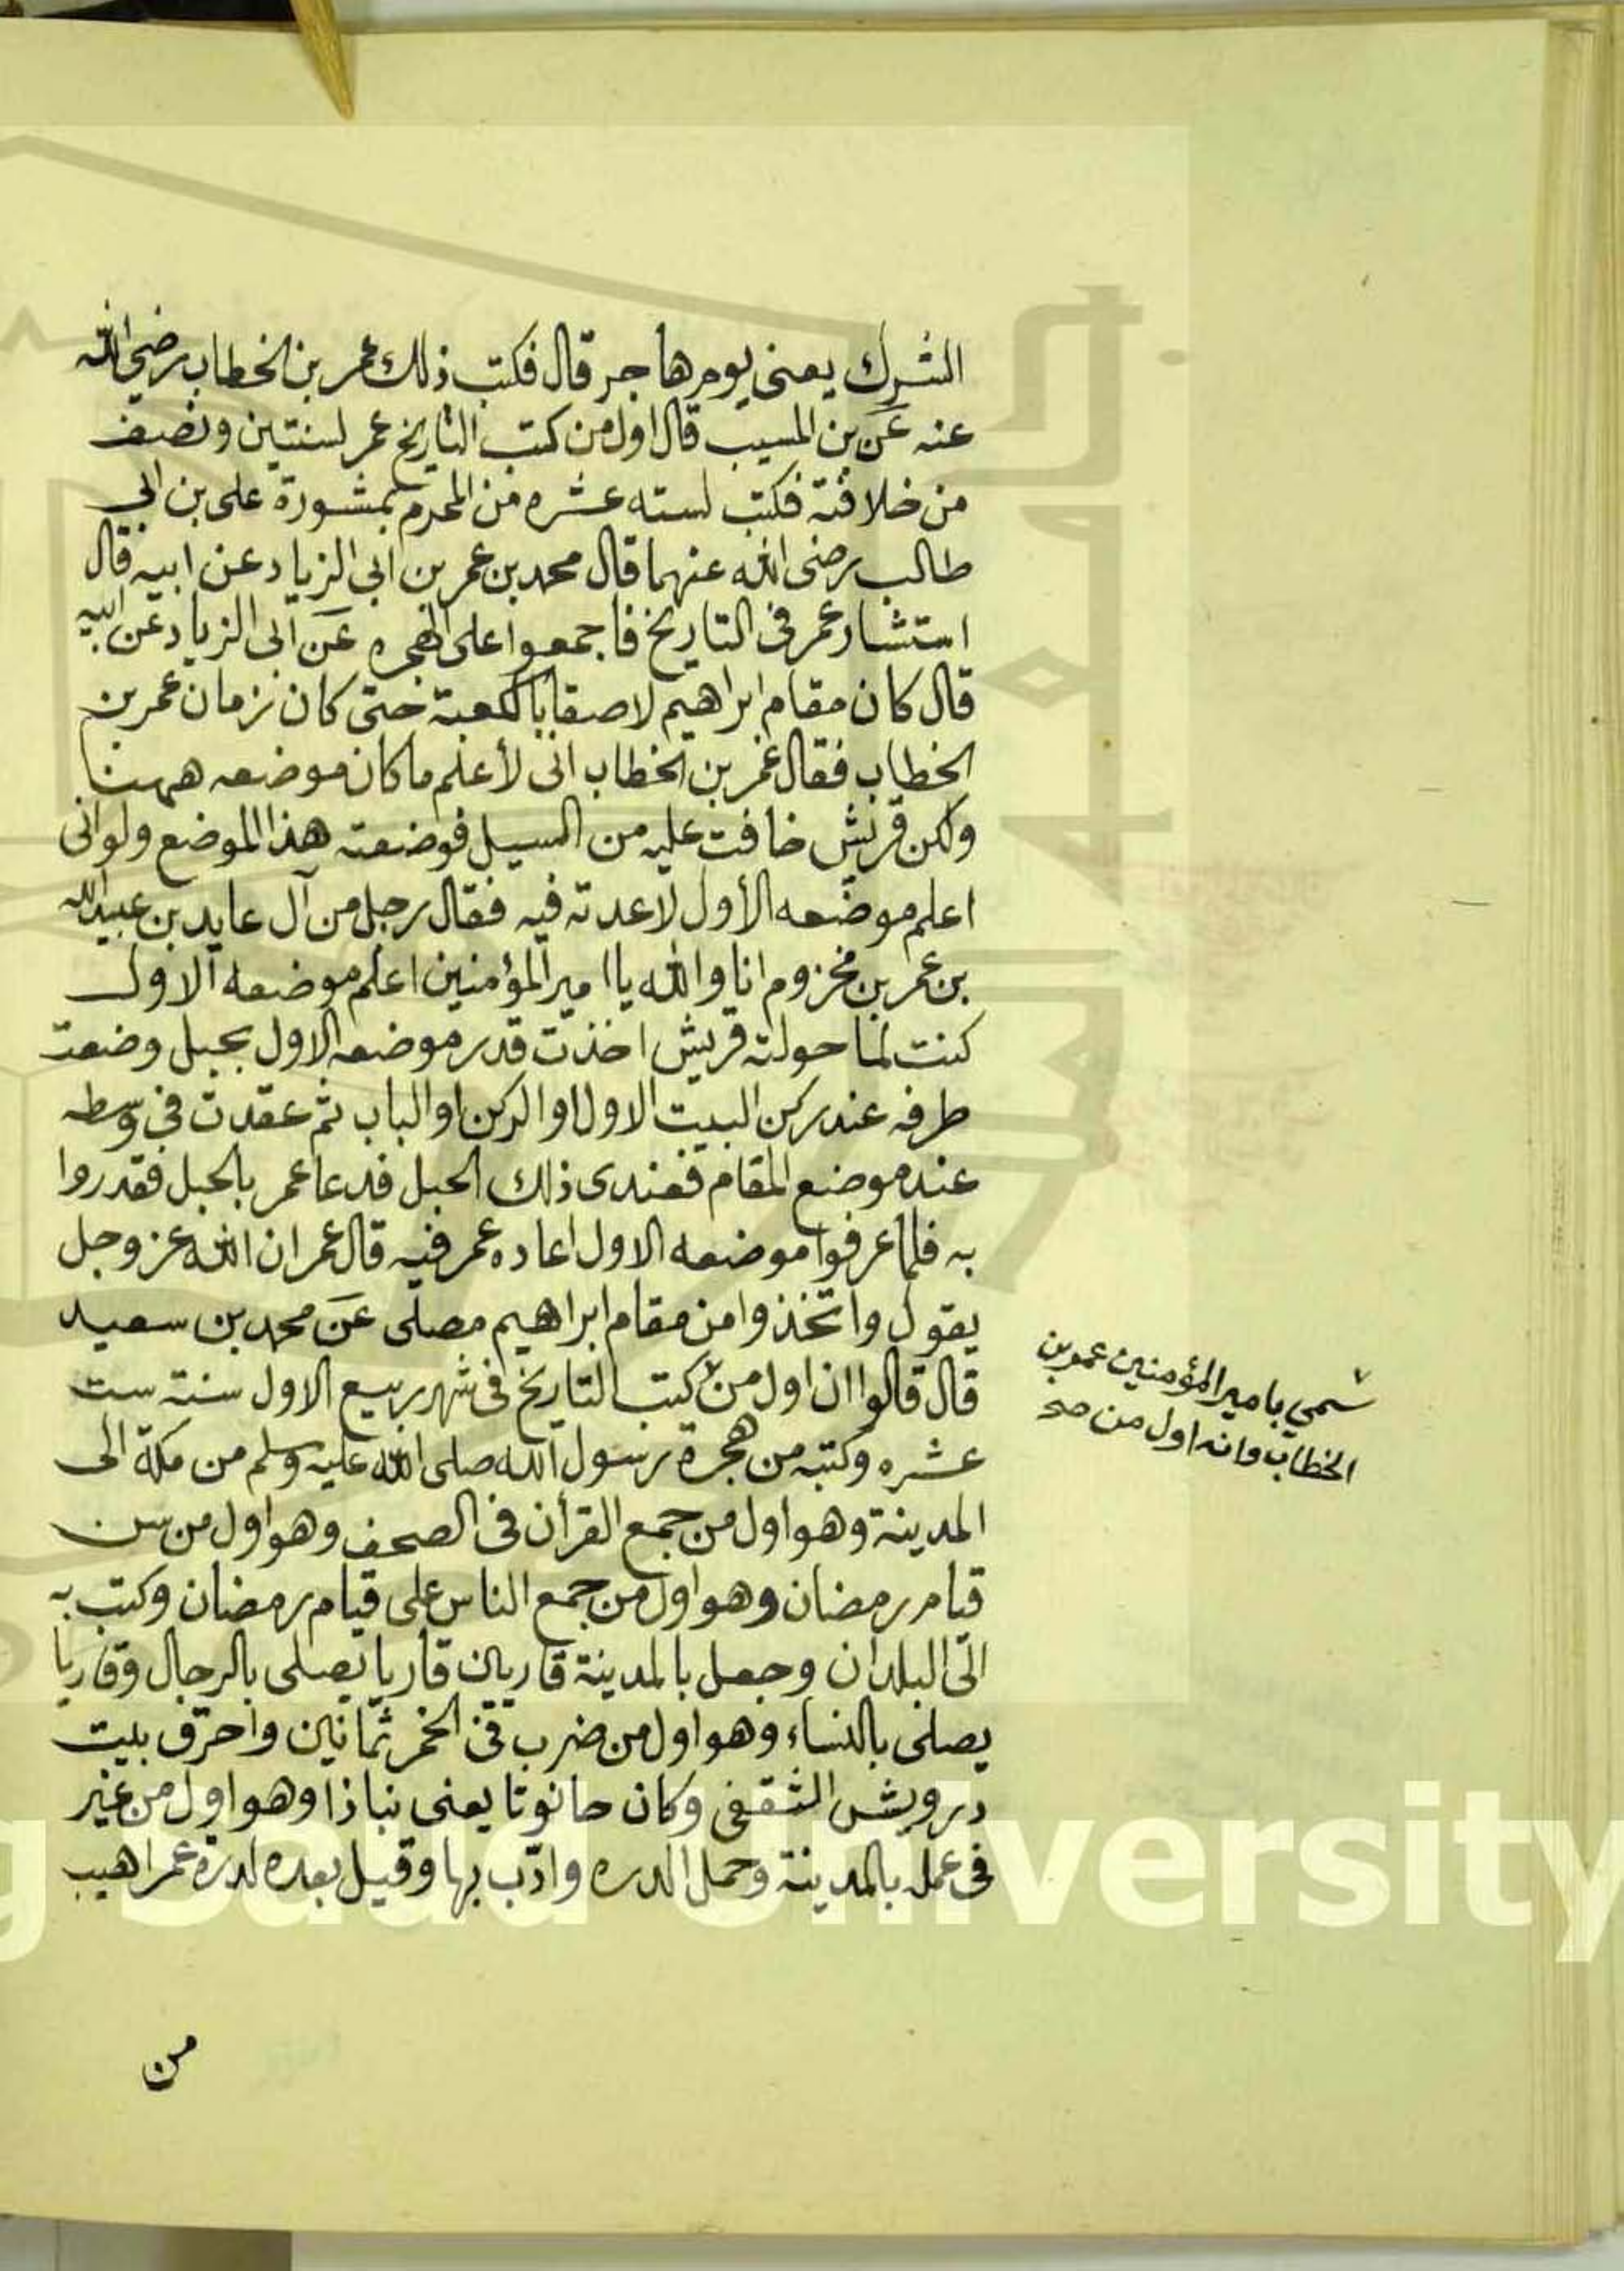 الشرك يعنى يوم هاجر قال فكتب ذلك عمر بن الخطاب رضي الله
عنه عن بن المسيب قال اول من كتب التاريخ عمر لسنتين ونصف
من خلافته فكتب لسته عشره من المحرم بمشورة على بن ابى
طالب رضى الله عنهما قال محمد بن عمر بن ابى الزياد عن ابيه قال
استشار عمر فى التاريخ فاجمعوا على الهجره عن ابى الزياد عن ابيه
قال كان مقام ابراهيم لاصقا بالكعبة حتى كان زمان عمر بن
الخطاب فقال عمر بن الخطاب انى لأعلم ما كان موضعه ههنا
ولكن قريش خافت عليه من السيل فوضعته هذا الموضع ولو انى
اعلم موضعه الأول لاعدته فيه فقال رجل من آل عايد بن عبيد الله
بن عمر بن مخزوم انا والله يا امير المؤمنين اعلم موضعه الاول
كنت لما حولته قريش اخذت قدر موضعه الاول بحبل وضعت
طرفه عند ركن البيت الاول او الركن او الباب ثم عقدت في وسطه
عند موضع المقام فعندى ذلك الحبل فدعا عمر بالحبل فقدروا
به فلما عرفوا موضعه الاول اعاده عمر فيه قال عمر ان الله عز وجل
يقول واتخذوا من مقام ابراهيم مصلى عن محمد بن سعيد
قال قالوا ان اول من كتب التاريخ فى شهر ربيع الاول سنة ست
عشره وكتبه من هجرة رسول الله صلى الله عليه وسلم من مكة الى
المدينة وهو اول من جمع القرأن فى الصحف وهو اول من سن
قيام رمضان وهو اول من جمع الناس على قيام رمضان وكتب به
الى البلدان وجعل بالمدينة قاريان قاريا يصلى بالرجال وقاريا
يصلى بالنساء وهو اول من ضرب فى الخمر ثمانين واحرق بيت
درويش الثقفى وكان حانوتا يعنى نباذا وهو اول من غير
فى عمله بالمدينة وحمل الدره وادب بها وقيل بعده لدرة عمر اهيب
من
سمي بامير المؤمنين عمر بن
الخطاب وانه اول من صح
King Saud University